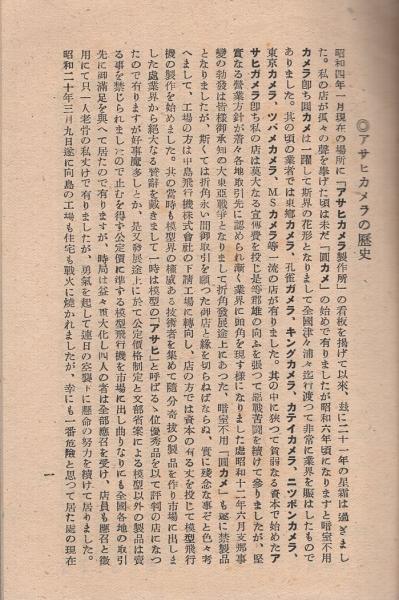 ◎アサヒカメラの歴史
昭和四年一月現在の場所に「アサヒカメラ製作所」の看板を揚げて以來、玆に二十一年の星霜は過ぎまし
た。私の店が孤々の聲を擧げた頃は未だ「圓カメ」の始めで有りましたが昭和六年頃になりますと暗室不用
カメラ卽ち圓カメは一躍して斯界の花形となりまして全國津々浦々迄行渡つて非常に業界を賑はしたもので
ありました。其の頃の業者では東鄕カメラ、孔雀カメラ、キングカメラ、ニツポンカメラ、
東京カメラ、ツバメカメラ、MSカメラ等一流の店が有りました。其の中に狹つて貧弱なる資本で始めたア
サヒガメラ卽ち私の店は莫大なる宣傳費を投じ是等群雄の向ふを張つて惡戰苦鬪を續けて參りましたが、堅
實なる營業方針が着々各地取引先に認められ漸く業界に頭角を現す樣になりました處昭和十二年六月支那事
變の勃發は皆樣御承知の大東亞戰爭となりまして折角發展途上にあつた、暗室不用「圓カメ」も遂に禁製品
となりましたが、斯くては折角永い間御取引を願つた御店と緣を切らねばならぬ、實に殘念な事ぞと色々考
へまして、工場の方は中島飛行機株式會社の下請工場に轉向し、店の方では資本の有る丈を投じて模型飛行
機の製作を始めました。其の當時も模型界の權威ある技術者を集めて隨分奇拔の製品を作り市場に出しま
した處業界から絕大なる贊辭を戴きまして一時は模型の「アサヒ」と呼ばるゝ位優秀品を以て評判の店になつ
たので有りますが好事魔多しとか、是又發展途上に於て公定價格制定と文部省案による模型以外の製品は賣
る事を禁じられましたので止むを得ず公定價に準ずる模型飛行機を市場に出し曲りなりにも全國各地の取引
先に御滿足を與へて居たので有りますが、時局は益々重大化し四人の者は全部應召を受け、店員も應召と徵
用にて只一人老骨の私丈けで有りましたが、勇氣を起して連日の空襲下に懸命の努力を續けて居りました。
昭和二十年三月九日遂に向島の工場も住宅も戰火に燒かれましたが、幸にも一番危險と思つて居た處の現在
一